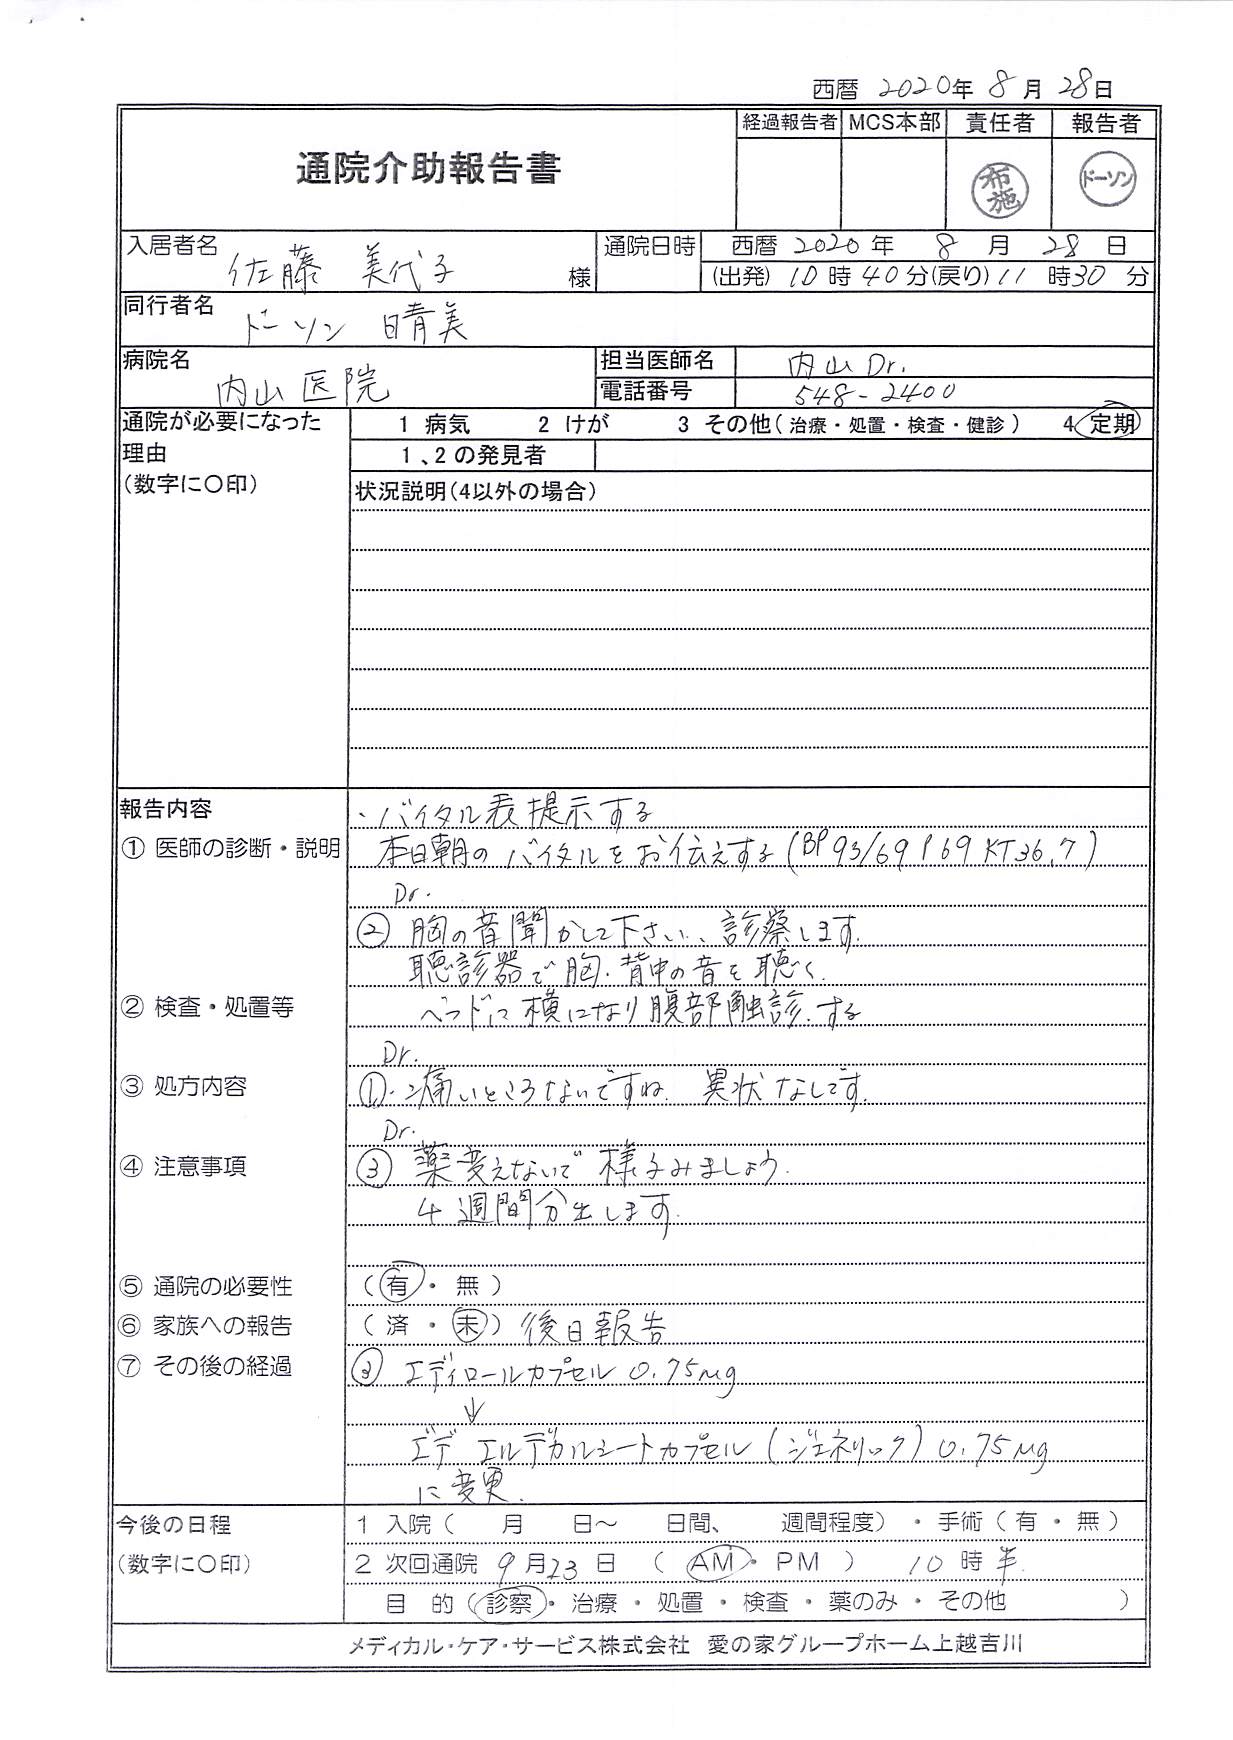 西暦 2020年 8月 28日
経過報告者 MCS本部 責任者 報告者
通院介助報告書
布施 ドーソン
入居者名 佐藤 美代子 様
通院日時 西暦 2020年 8月 28日
(出発) 10時40分(戻り) 11時30分
同行者名 ドーソン 晴美
病院名 内山医院
担当医師名 内山Dr.
電話番号 548-2400
通院が必要になった理由
(数字に〇印)
1 病気 2 けが 3 その他(治療・処置・検査・健診) 4 定期
1、2の発見者
状況説明(4以外の場合)
報告内容
・バイタル表提示する
① 医師の診断・説明
本日朝のバイタルをお伝えする(BP93/69 P69 KT36.7)
Dr.
② 胸の音聞かして下さい、診察します。
聴診器で胸、背中の音を聴く。
② 検査・処置等
ベッドに横になり腹部触診する
Dr.
③ 処方内容
①痛いところないですね。異状なしです。
Dr.
④ 注意事項
③ 薬変えないで様子みましょう。
4週間分出します。
⑤ 通院の必要性 (有・無)
⑥ 家族への報告 (済・未) 後日報告
⑦ その後の経過
③ エディロールカプセル 0.75μg
↓
エデ エルデカルシートカプセル(ジェネリック) 0.75μg
に変更。
今後の日程
(数字に〇印)
1 入院( 月 日~ 日間、 週間程度)・手術(有・無)
2 次回通院 9月23日 (AM・PM) 10時半
目 的(診察・治療・処置・検査・薬のみ・その他 )
メディカル・ケア・サービス株式会社 愛の家グループホーム上越吉川